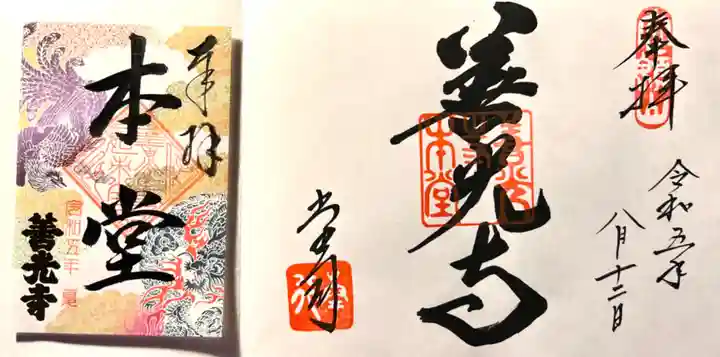 奉拝
令和五年
八月十二日
善光寺
本堂
奉拝
本堂
令和五年 夏
善光寺